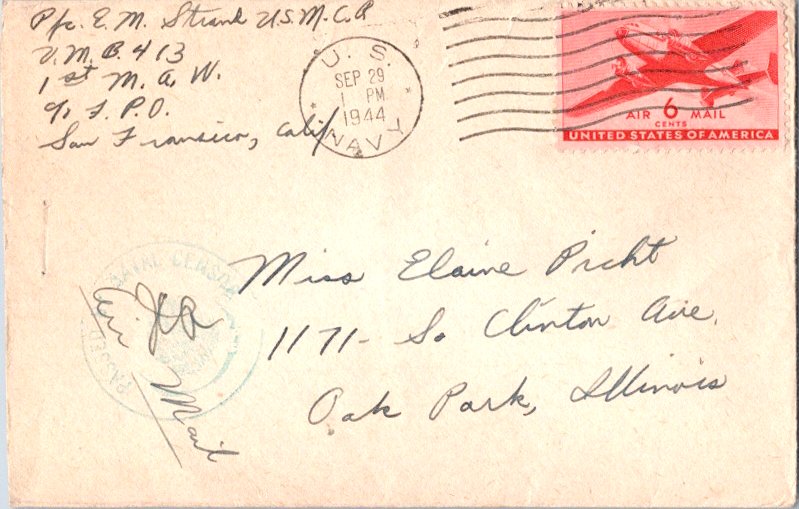 Pfc. E. M. Strand U.S.M.C.R
V.M.B. 413
1st M.A.W.
c/o F.P.O.
San Fransico, Calif
U. S.
SEP 29
1 PM
1944
NAVY
AIR 6 MAIL
CENTS
UNITED STATES OF AMERICA
PASSED NAVAL CENSOR
Air Mail
Miss Elaine Picht
1171 - So Clinton Ave.
Oak Park, Illinois